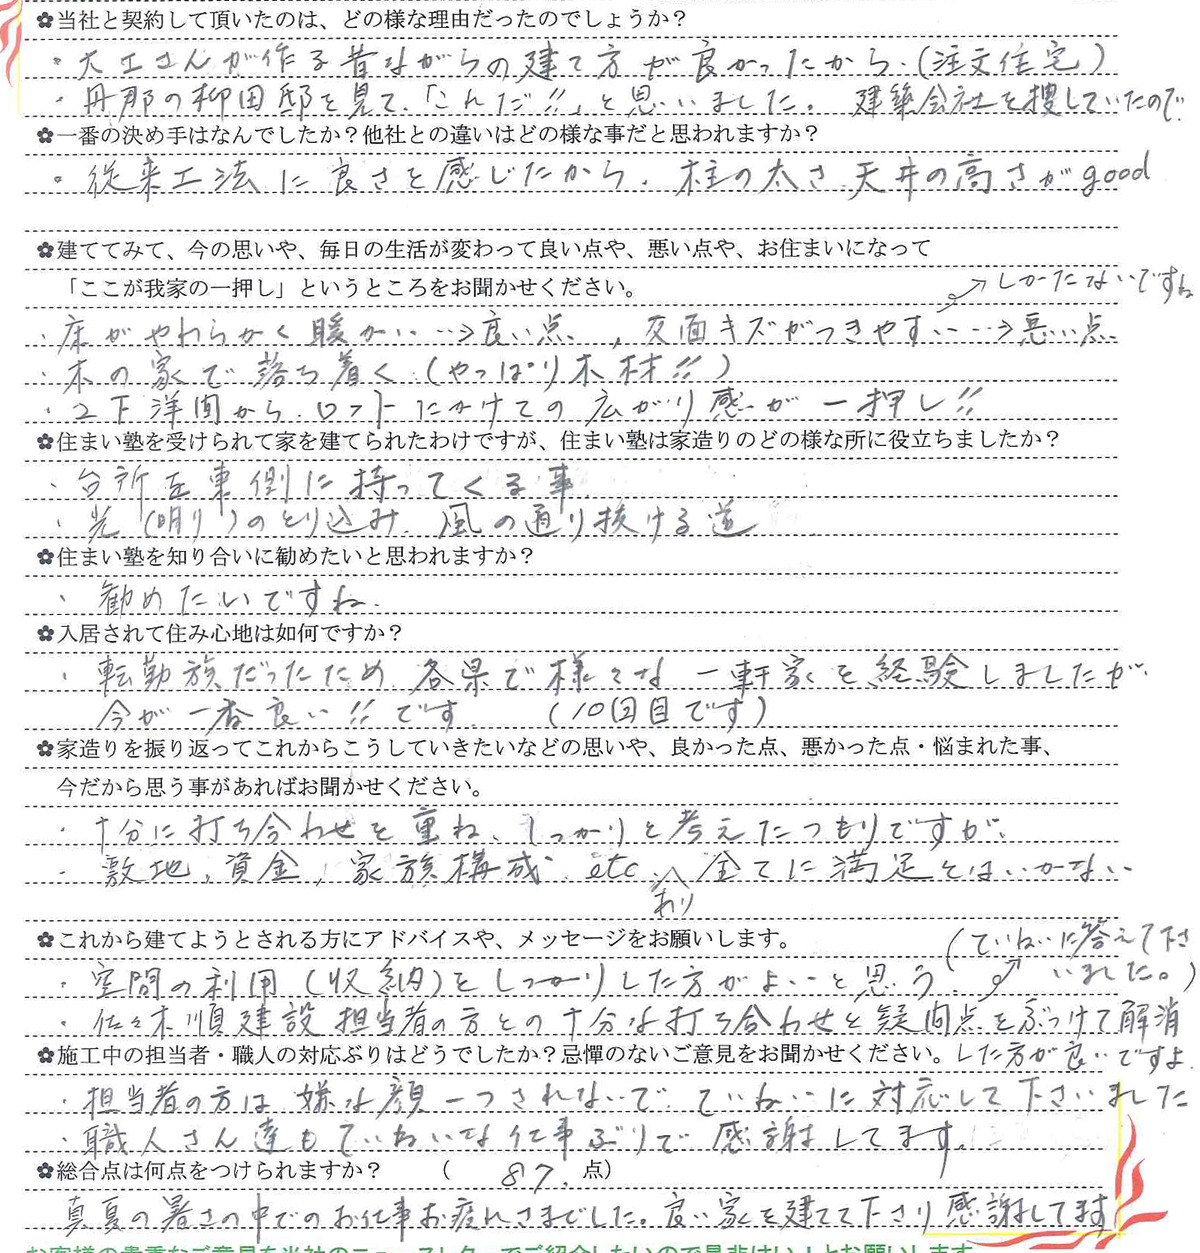 ✿当社と契約して頂いたのは、どの様な理由だったのでしょうか？
・大工さんが作る昔ながらの建て方が良かったから.(注文住宅)
・丹那の柳田邸を見て、「これだ!!」と思いました。 建築会社を捜していたので
✿一番の決め手はなんでしたか？他社との違いはどの様な事だと思われますか？
・従来工法に良さを感じたから. 柱の太さ.天井の高さがgood
✿建ててみて、今の思いや、毎日の生活が変わって良い点や、悪い点や、お住まいになって
「ここが我家の一押し」というところをお聞かせください。
しかたないですね
・床がやわらかく暖かい…→良い点. , 反面キズがつきやすい…→悪い点.
・木の家で落ち着く.(やっぱり木材!!)
・2F洋間から.ロフトにかけての広がり感が一押し!!
✿住まい塾を受けられて家を建てられたわけですが、住まい塾は家造りのどの様な所に役立ちましたか？
・台所を東側に持ってくる事
・光(明り)のとり込み. 風の通り抜ける道
✿住まい塾を知り合いに勧めたいと思われますか？
・勧めたいですね.
✿入居されて住み心地は如何ですか？
・転勤族だったため.各県で様々な一軒家を経験しましたが.
今が一番良い!!です. (10回目です)
✿家造りを振り返ってこれからこうしていきたいなどの思いや、良かった点、悪かった点・悩まれた事、
今だから思う事があればお聞かせください。
・十分に打ち合わせを重ね、しっかりと考えたつもりですが、
・敷地,資金,家族構成.etc.あり 全てに満足とはいかない
✿これから建てようとされる方にアドバイスや、メッセージをお願いします。
・空間の利用(収納)をしっかりした方がよいと思う.
(ていねいに答えて下さ
いました。)
・佐々木順建設担当者の方との十分な打ち合わせと疑問点をぶつけて解消
した方が良いですよ.
✿施工中の担当者・職人の対応ぶりはどうでしたか？忌憚のないご意見をお聞かせください。
・担当者の方は嫌な顔一つされないで.ていねいに対応して下さいました
・職人さん達もていねいな仕事ぶりで感謝してます。
✿総合点は何点をつけられますか？ ( 87. 点)
真夏の暑さの中でのお仕事お疲れさまでした。良い家を建てて下さり感謝してます
お客様の貴重なご意見を当社のニュースレターでご紹介したいので是非はい！とお願いします